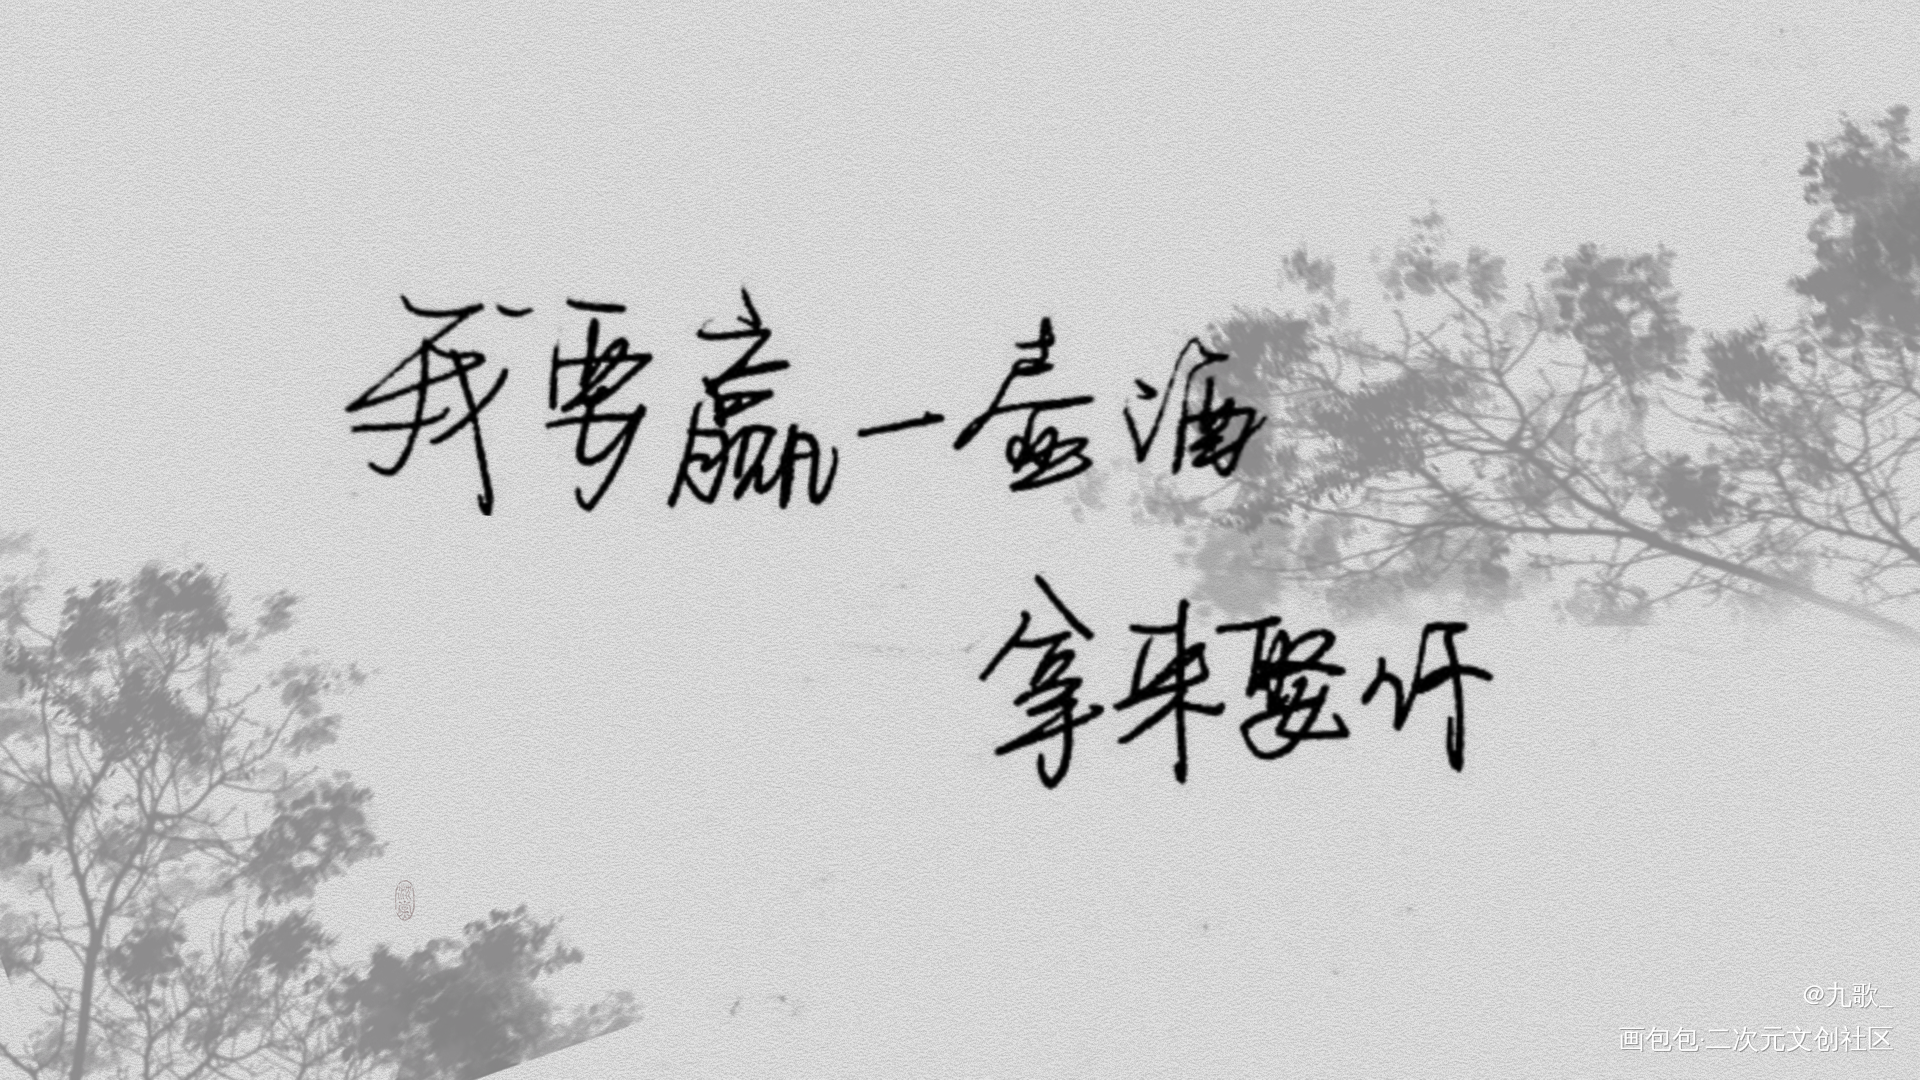 我要赢一壶酒
拿来娶你
@九歌_
画包包·二次元文创社区